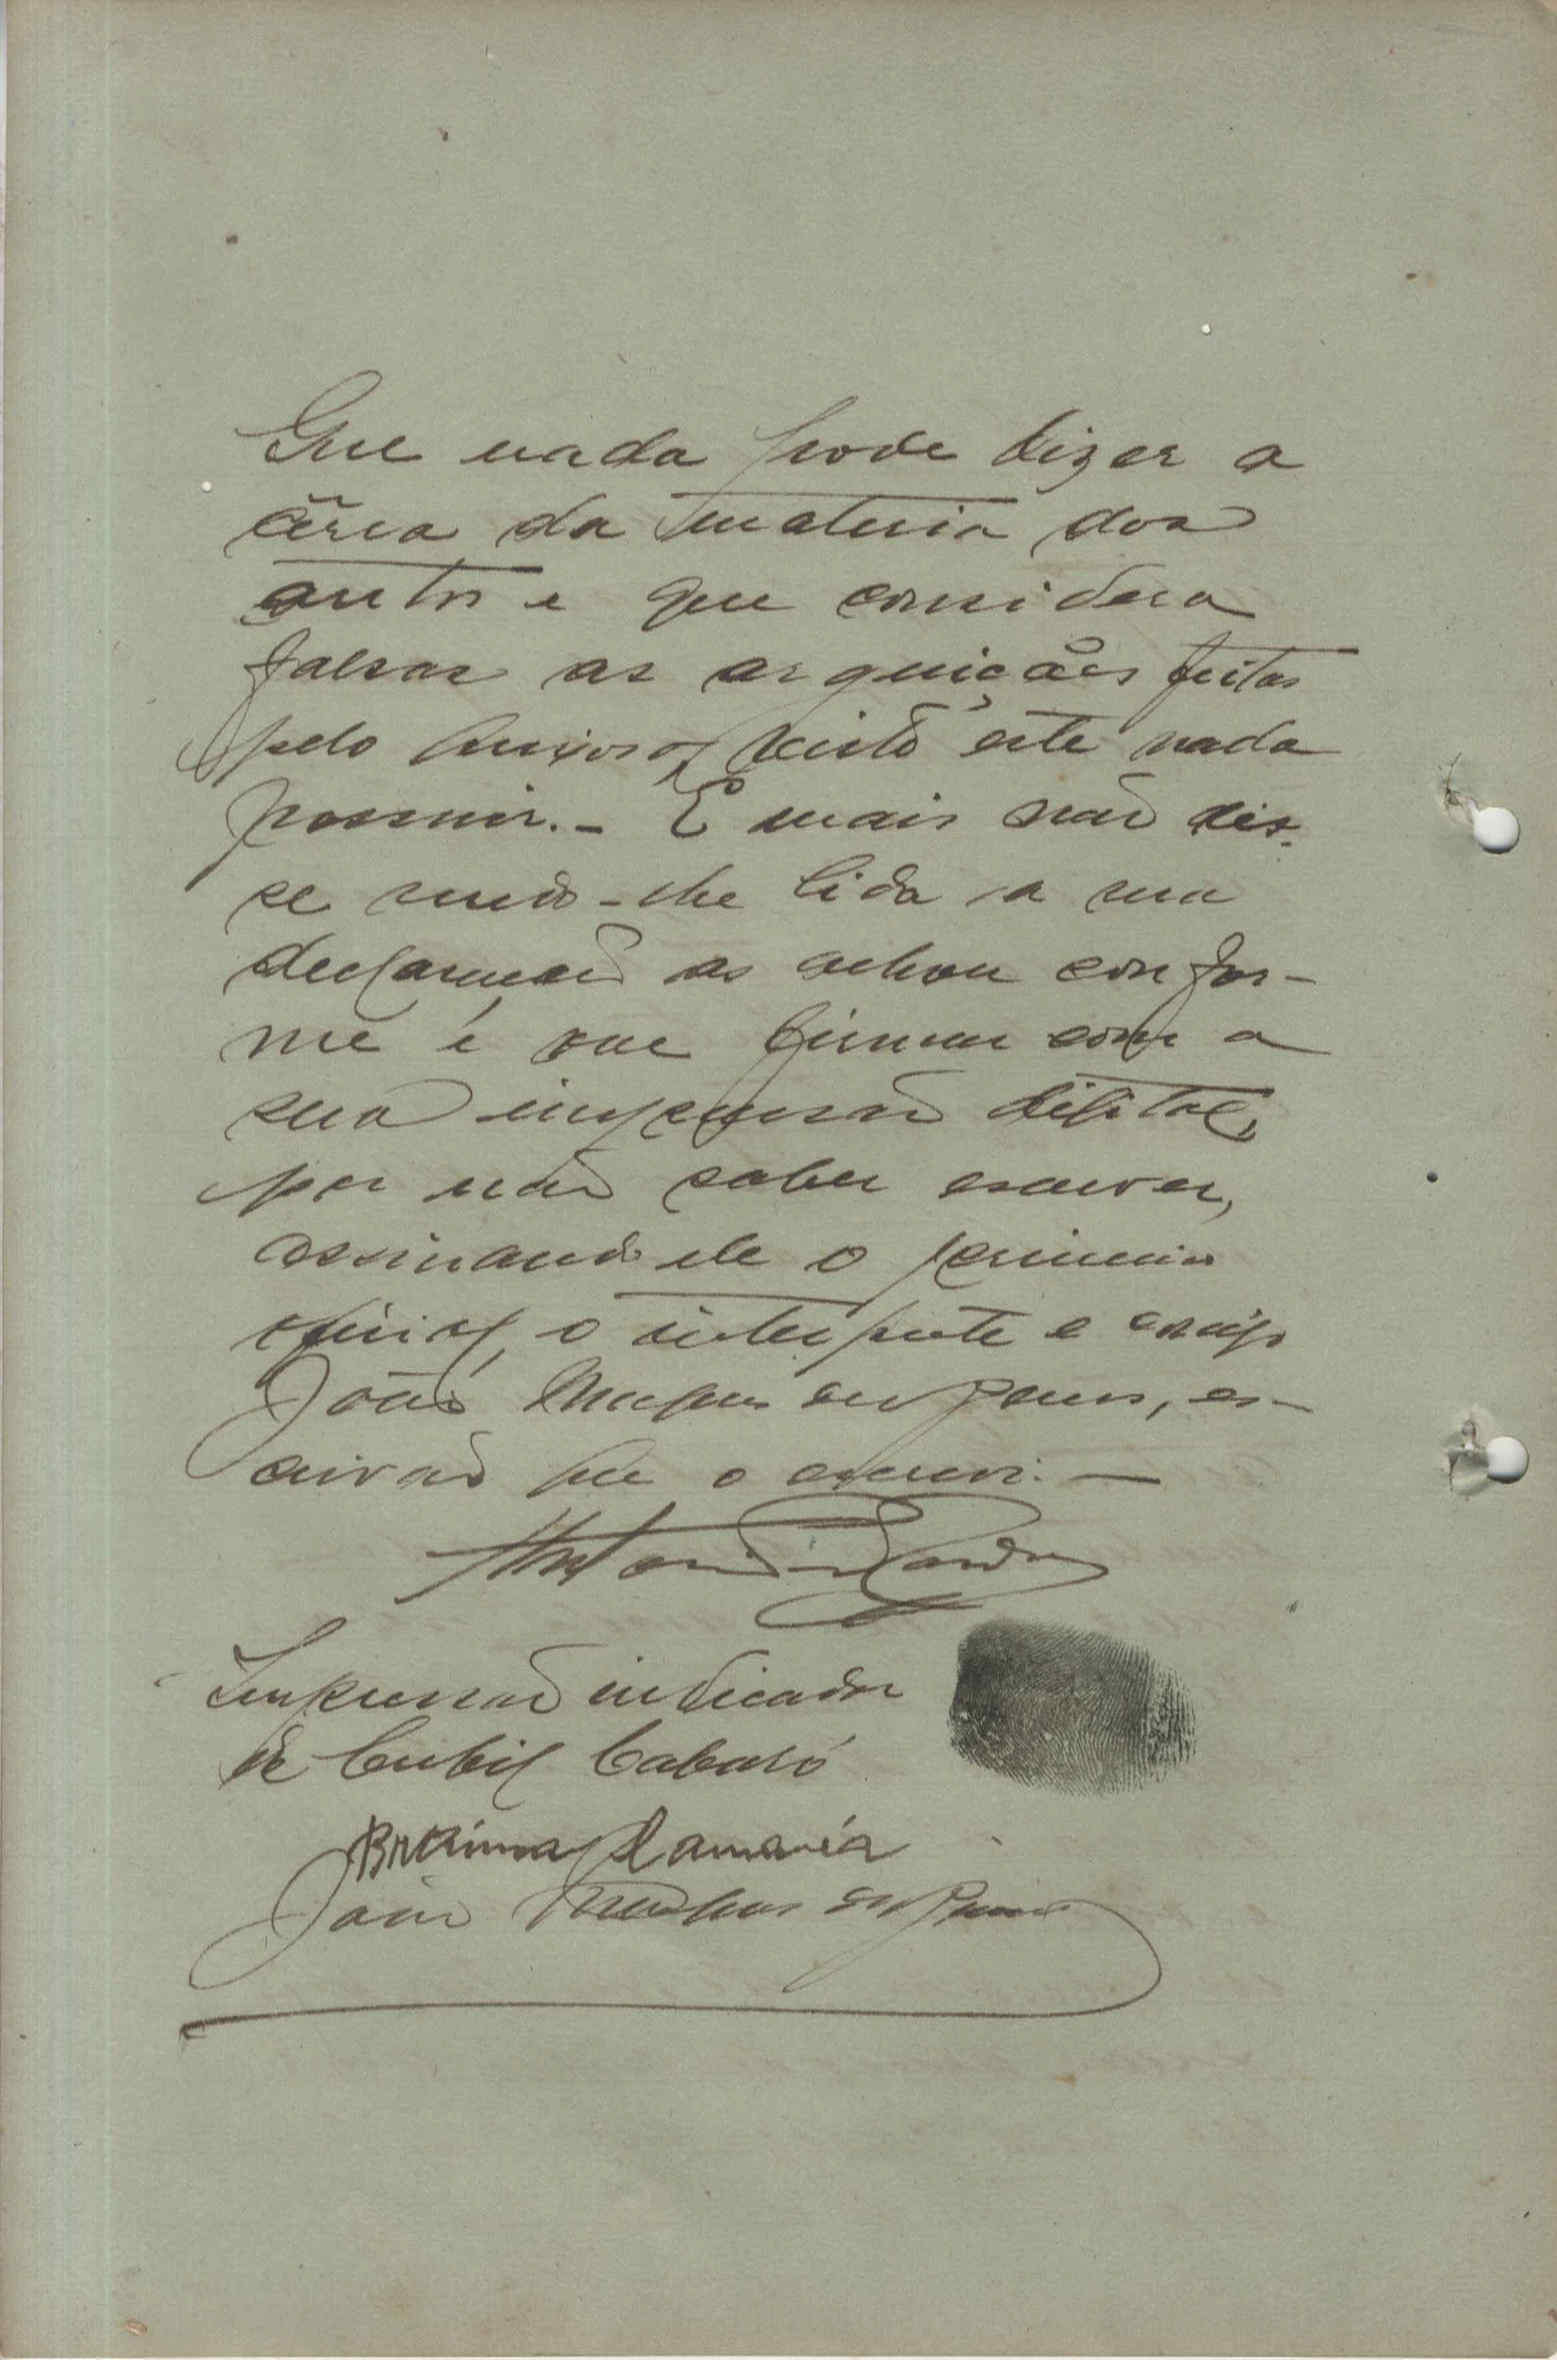 Que nada pode dizer a
cêrca da materia dos
autos e que considera
falsas as arguições feitas
pelo queixoso, visto este nada
possuir. - E mais não dis-
se sendo-lhe lida a sua
declaração as achou confor-
me e vae firmar com a
sua impressão digital,
por não saber escrever,
assinando ele o primeiro
oficial, o interprete e comigo
João
crivão que o escrevi. —
Impressão indicador
de Cubil Cabaló
Braima Camará
João